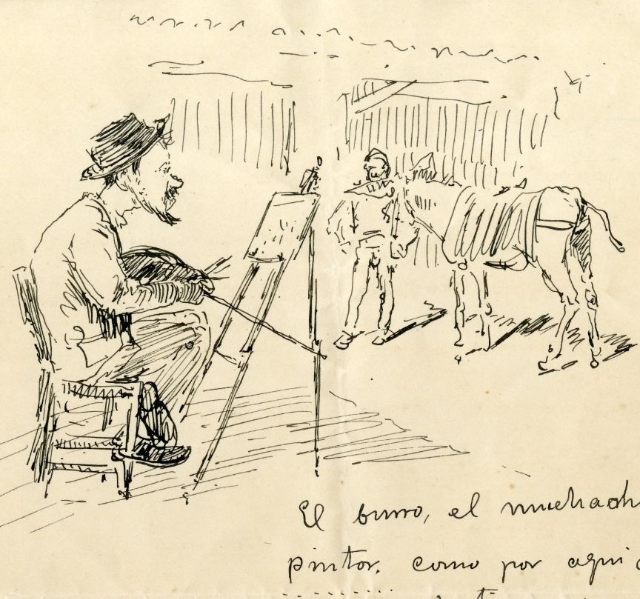 El burro, el muchach
pintor. como por aqui